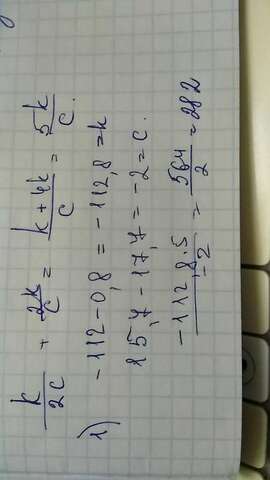 k/2c + 2k/c = k+4k/c = 5k/c.
1) -112-0,8 = -112,8 = k
15,7 - 17,7 = -2 = c.
-112,8·5/-2 = 564/2 = 282